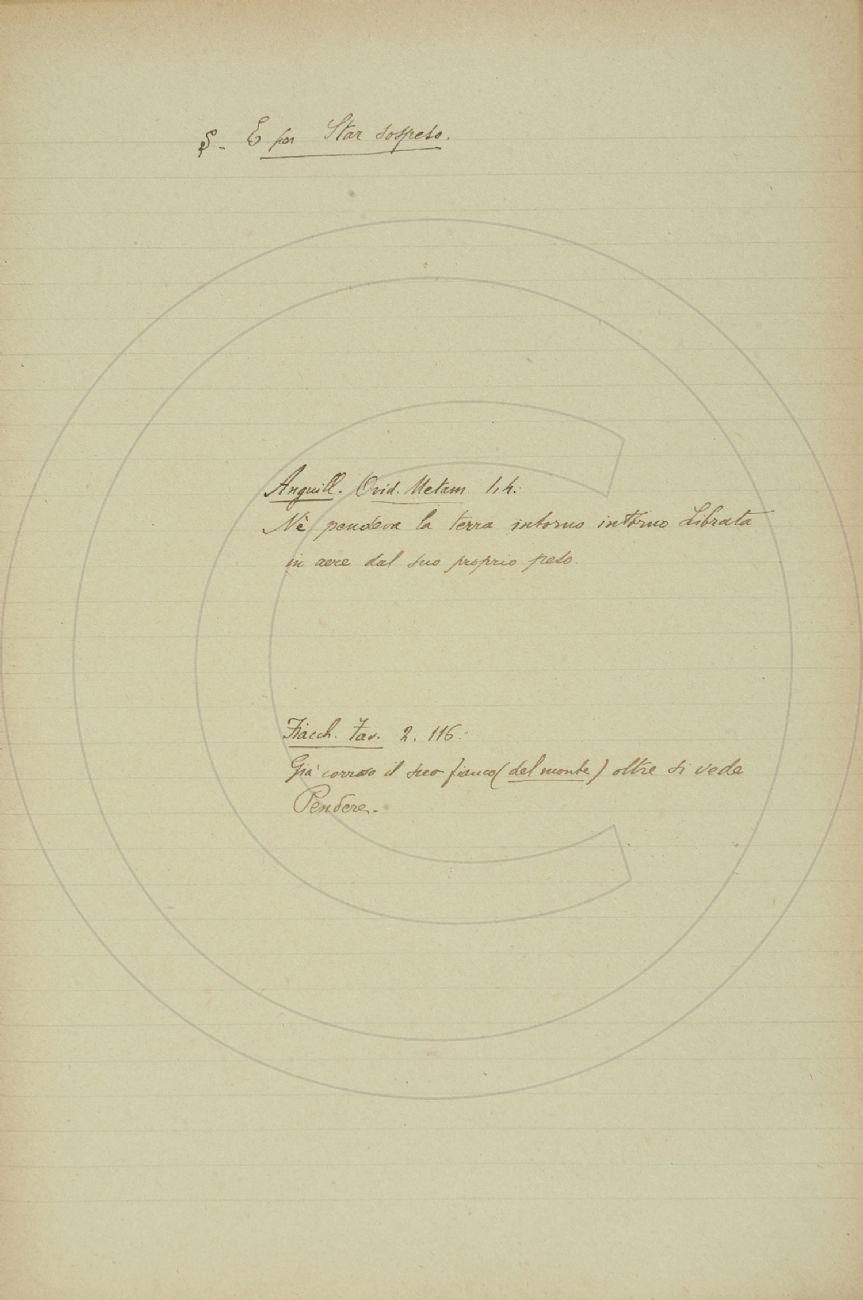 §. E per Star sospeso.
Anguill. Ovid. Metam 1.4.:
Nè pendeva la terra intorno intorno Librata
in aere dal suo proprio peso.
Fiacch. Fav. 2. 116.:
Già corroso il suo fianco (del monte) oltre si vede
Pendere.